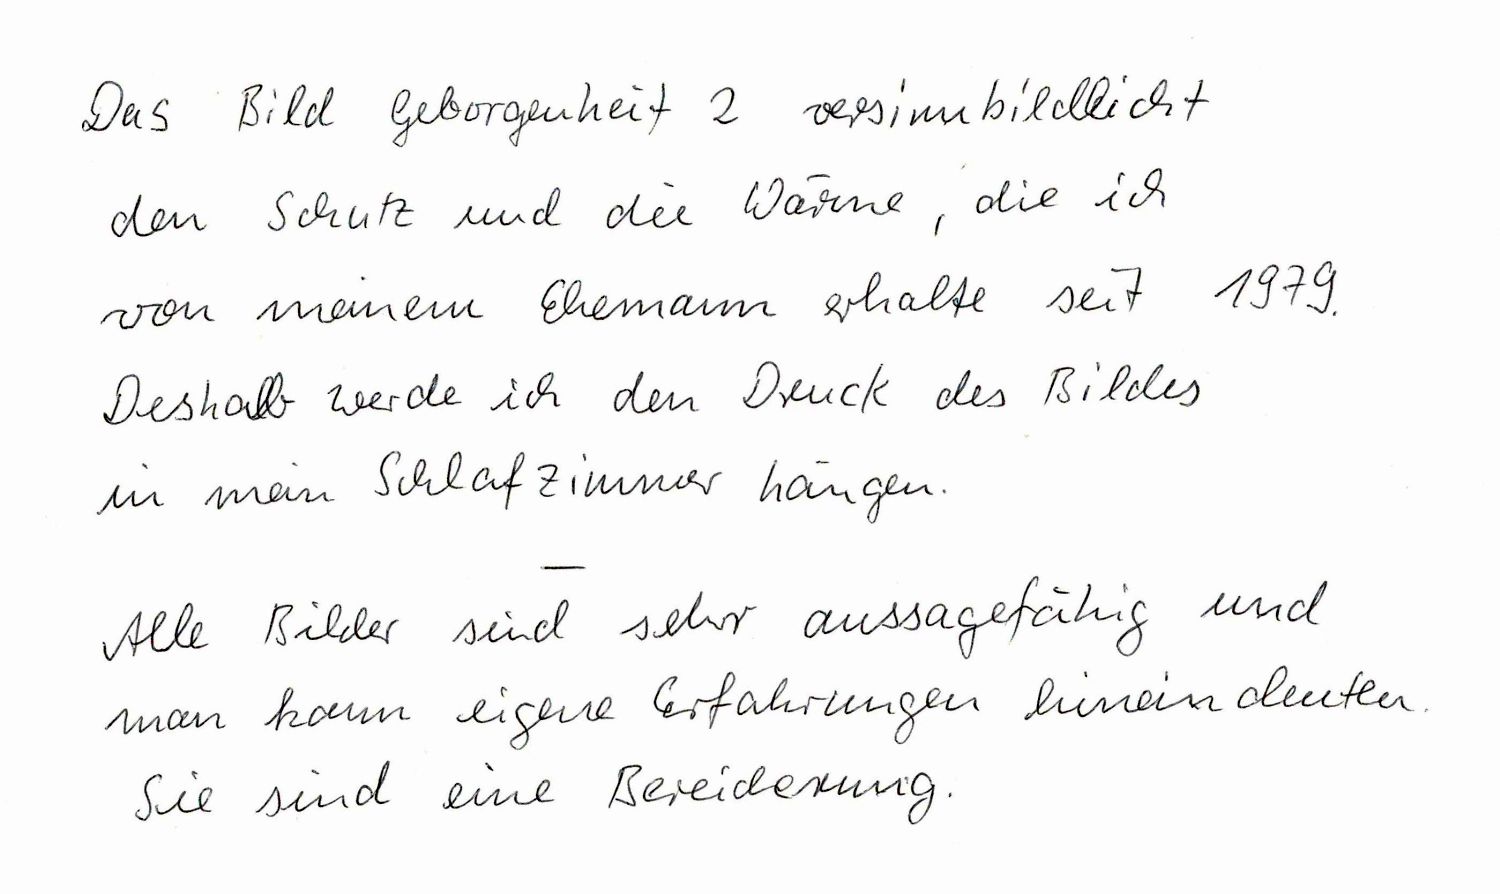 Das Bild Geborgenheit 2 versinnbildlicht
den Schutz und die Wärme, die ich
von meinem Ehemann erhalte seit 1979.
Deshalb werde ich den Druck des Bildes
in mein Schlafzimmer hängen.
—
Alle Bilder sind sehr aussagefähig und
man kann eigene Erfahrungen hineindeuten.
Sie sind eine Bereicherung.